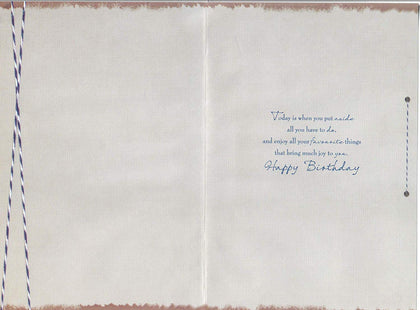 Today is when you put aside
all you have to do,
and enjoy all your favourite things
that bring much joy to you.
Happy Birthday